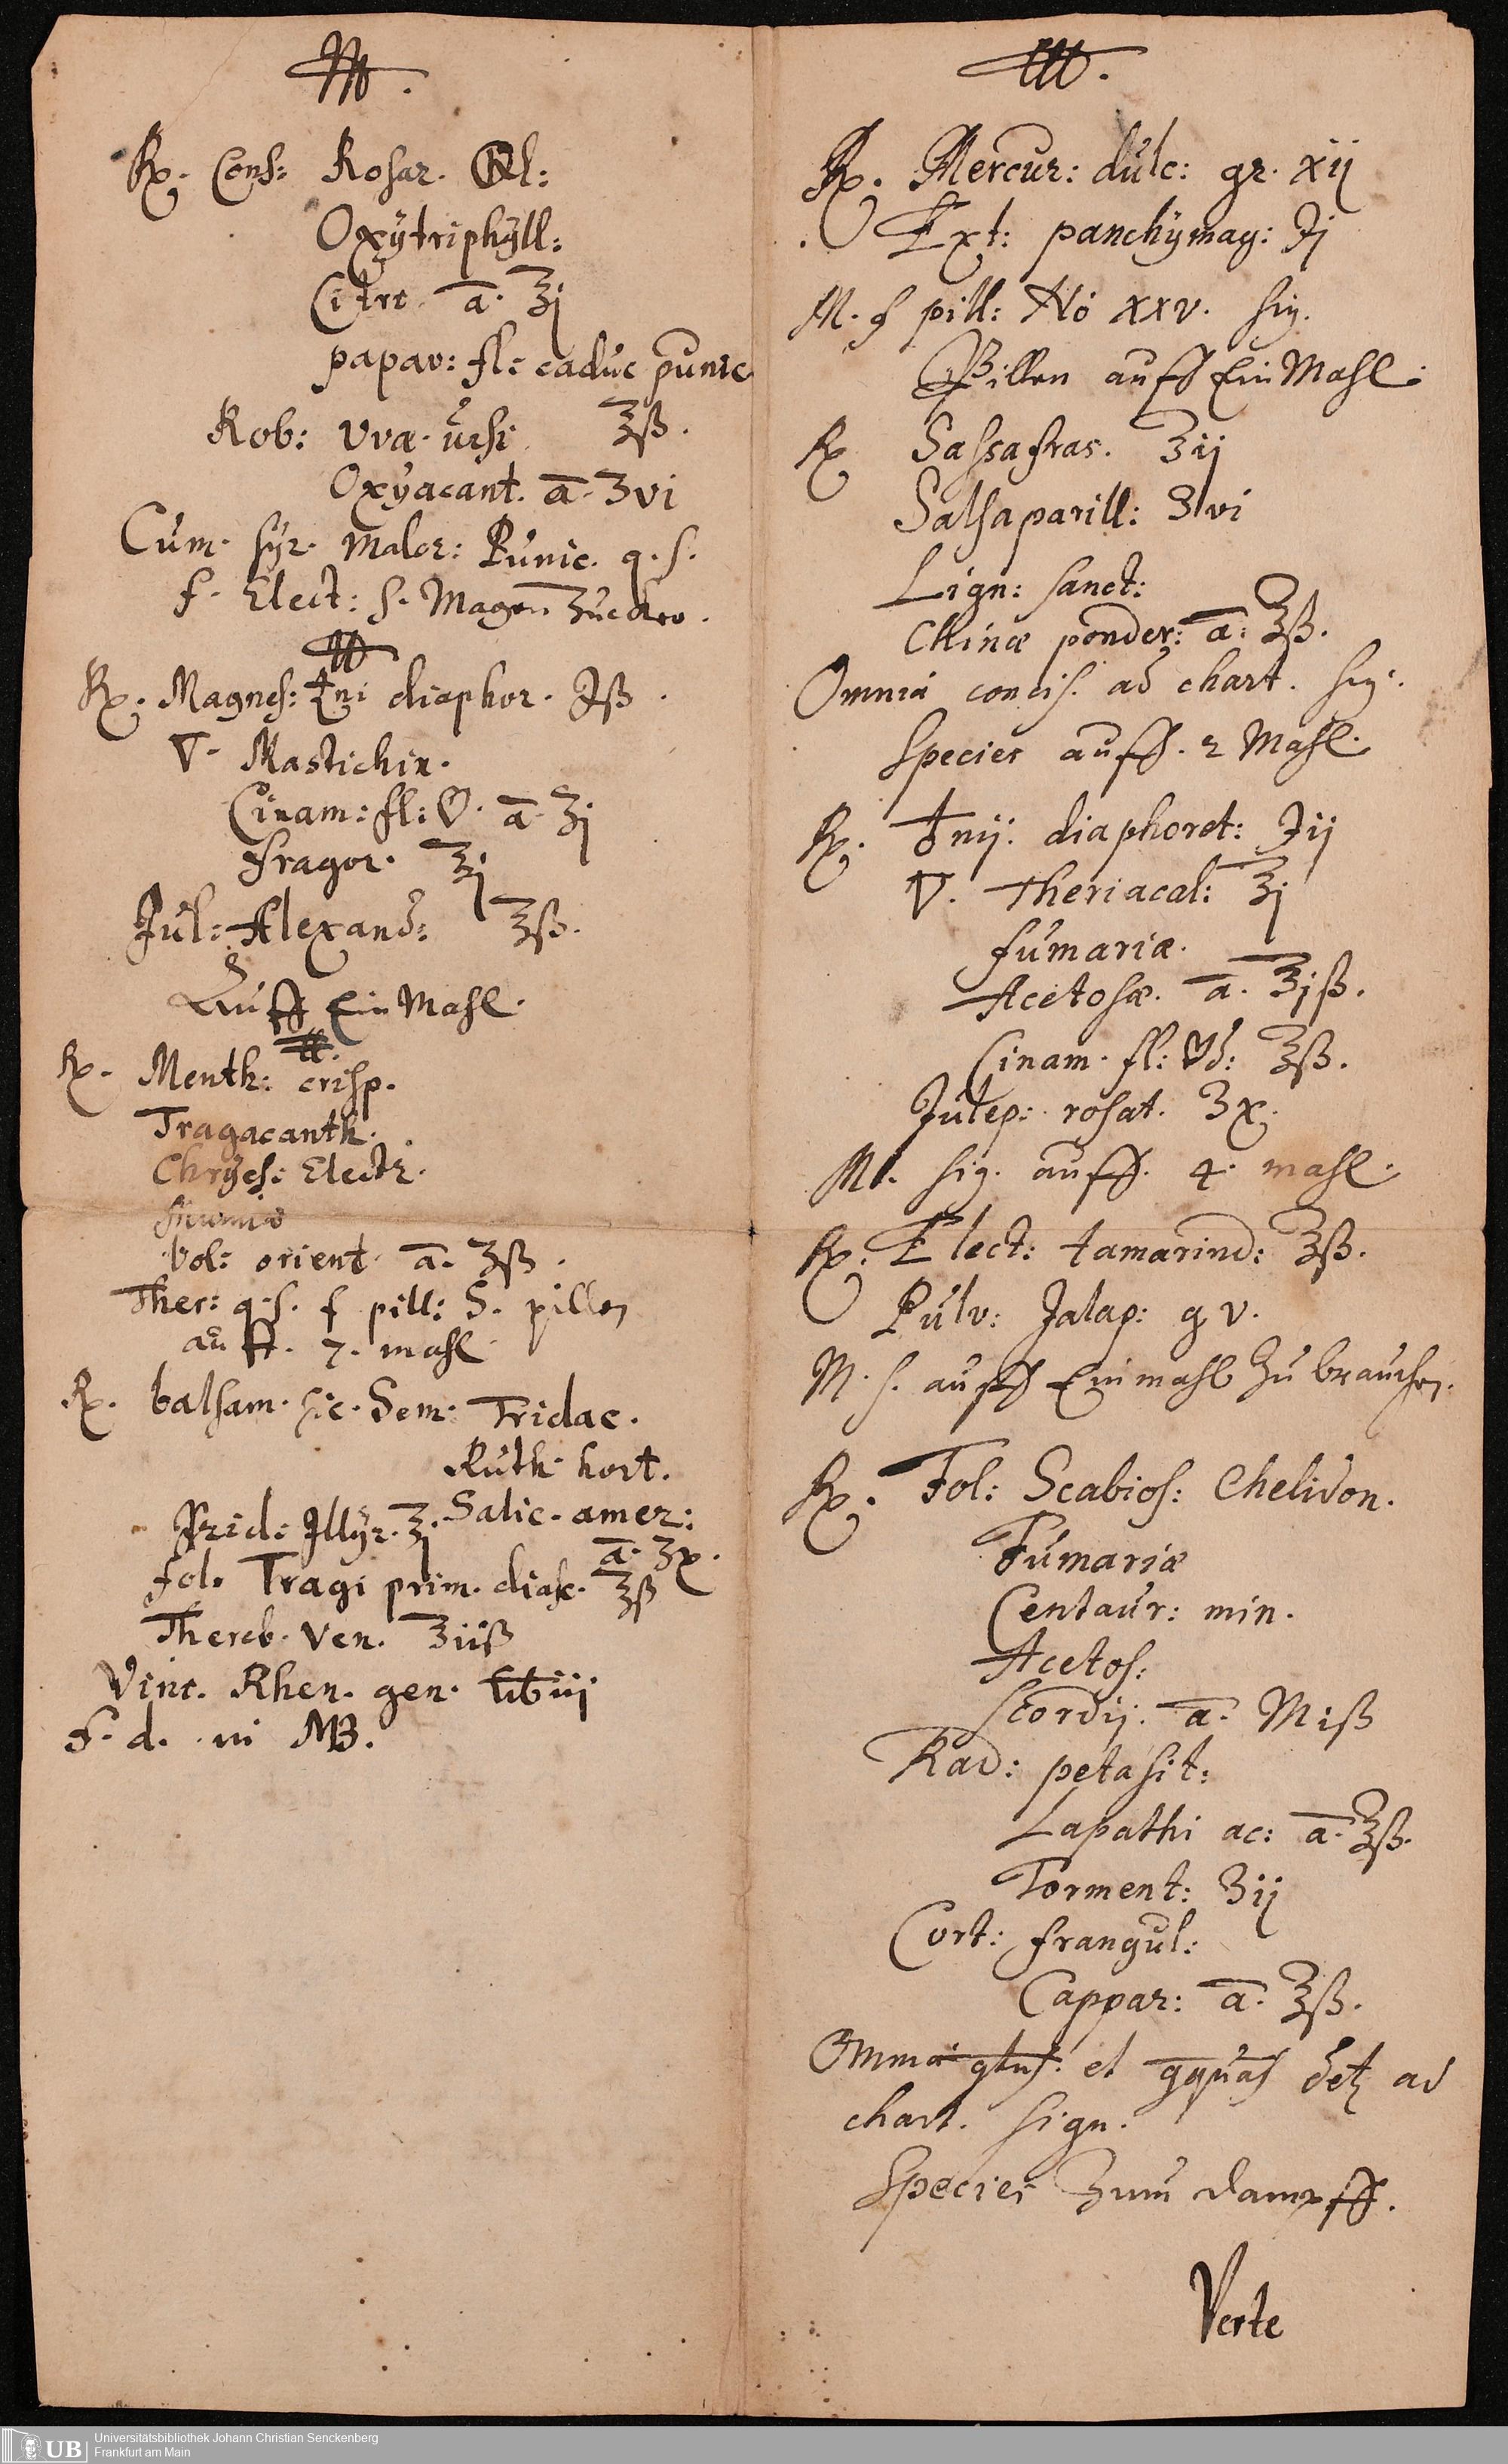 ℞. Cons: Rosar. Rl:
Oxÿtriphÿll:
Citrt a. ℥j
papav: fl: caduc punic
℥ß.
Rob: Uvæ. ursi
Oxÿacant. a. ʒvi
Cum. sÿr. malor: Punic. q. s.
f. Elect: S. Magen Zucker.
℞. Magnes: ♁ni diaphor. ℈ß.
▽. Mastichin.
Cinam: fl: a. ℥j
fragor. ℥j
Jul: Alexand: ℥ß.
Auff Ein Mahl.
℞. Menth: crisp.
Tragacanth.
Chrÿes: Electr.
Mumiæ
bol: orient. a. ʒß.
Ther: q. s. f pill: S. pillen
auff. 7. mahl
℞. balsam. sic. Sem: Tridac.
Ruth hort.
Salic. amer:
Irid: Illÿr. ℥j.
a. ʒx.
fol. Tragi prim. diosc. ℥ß
Thereb. Ven. ʒiiß
Vini. Rhen. gen. lib iij
F. d. in MB.
℞. Mercur: dulc: gr. xij
Ext: panchÿmag: ℈j
M. f pill: No xxv. sig.
Pillen auff Ein Mahl.
℞ Sassafras. ʒij
Salsaparill: ʒvi
Lign: sanct:
Chinæ ponder: a. ℥ß.
Omnia concis. ad chart. sig.
Species auff. 2 Mahl.
℞. ♁nij. diaphoret: ℈ij
▽. Theriacal: ℥j
fumariæ.
Acetosæ. a. ℥jß.
Cinam. fl: ℥ß.
Julep: rosat. ʒx.
M. sig. auff. 4. mahl.
℞. Elect: tamarind: ℥ß.
Pulv: Jalap: g v.
M. s. auff Ein mahl Zu brauchen.
℞. Fol: Scabios: Chelidon.
Fumariæ
Centaur: min.
Acetos:
Scordij. a. M iß
Rad: petasit:
Lapathi ac: a. ℥ß.
Torment: ʒij
Cort: frangul:
Cappar: a. ℥ß.
Omnia et detz ad
chart. sign.
Species Zum dampff.
Verte
Universitätsbibliothek Johann Christian Senckenberg
Frankfurt am Main
UB